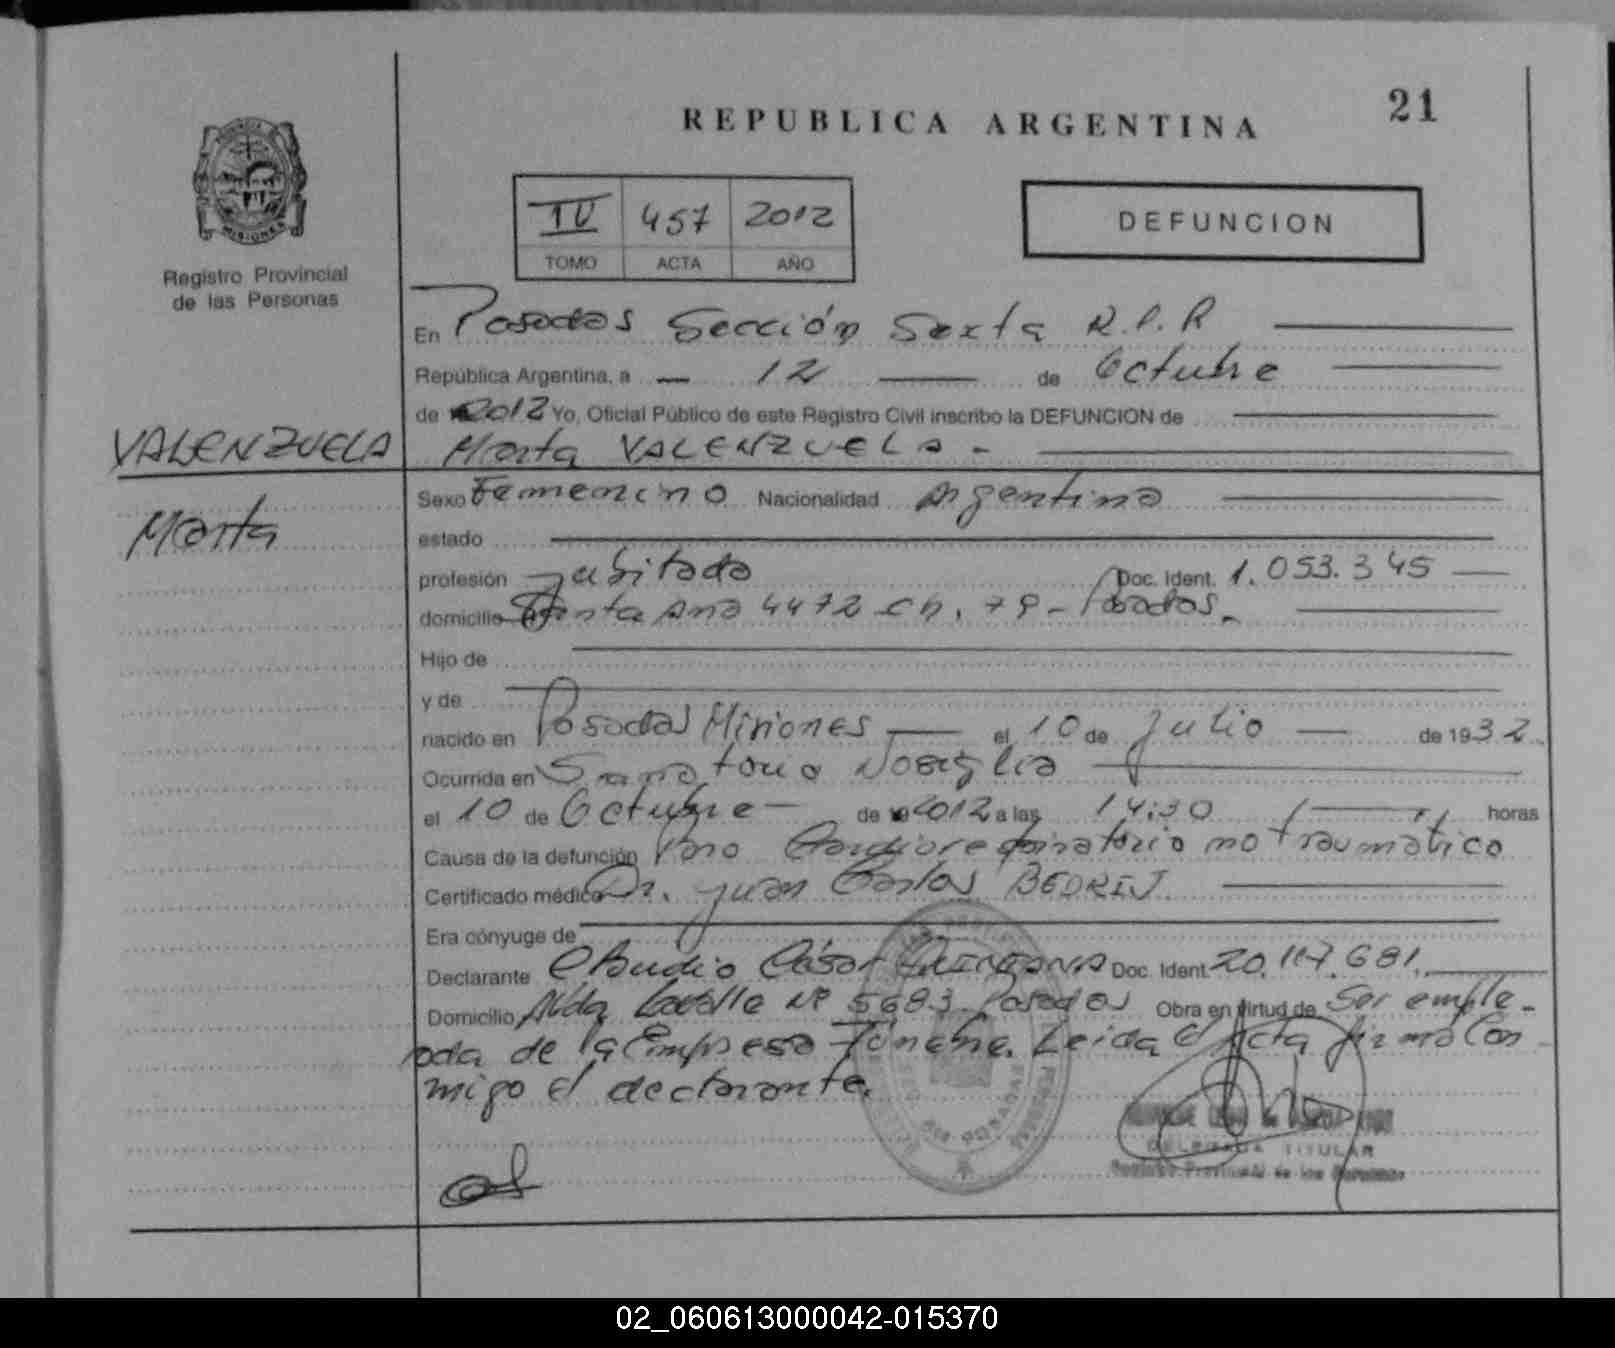 21
REPUBLICA ARGENTINA
PROVINCIA DE
MISIONES
Registro Provincial
de las Personas
IV 457 2012
TOMO ACTA AÑO
DEFUNCION
En Posadas Sección Sexta R.P.P
República Argentina, a — 12 — de Octubre
de 2012 Yo, Oficial Público de este Registro Civil inscribo la DEFUNCION de
VALENZUELA
Marta VALENZUELA -
Marta
Sexo Femenino Nacionalidad Argentina
estado
profesión Jubilada Doc. Ident. 1.053.345
domicilio Santa Ana 4472 ch. 79 - Posadas.
Hijo de
y de
nacido en Posadas Misiones — el 10 de Julio — de 1932.
Ocurrida en Sanatorio Nosiglia
el 10 de Octubre — de 2012 a las 14:30 horas
Causa de la defunción Paro Cardiorespiratorio no traumático
Certificado médico Dr. Juan Carlos BEDRIJ
Era cónyuge de
Declarante Claudio César QUINTANA Doc. Ident. 20.117.681.
Domicilio Avda Lavalle Nº 5683 Posados Obra en virtud de Ser emple-
ada de la Empresa Fúnebre. Leida el Acta firma con
migo el declarante.
DELEGADA TITULAR
Registro Provincial de las Personas
02_060613000042-015370